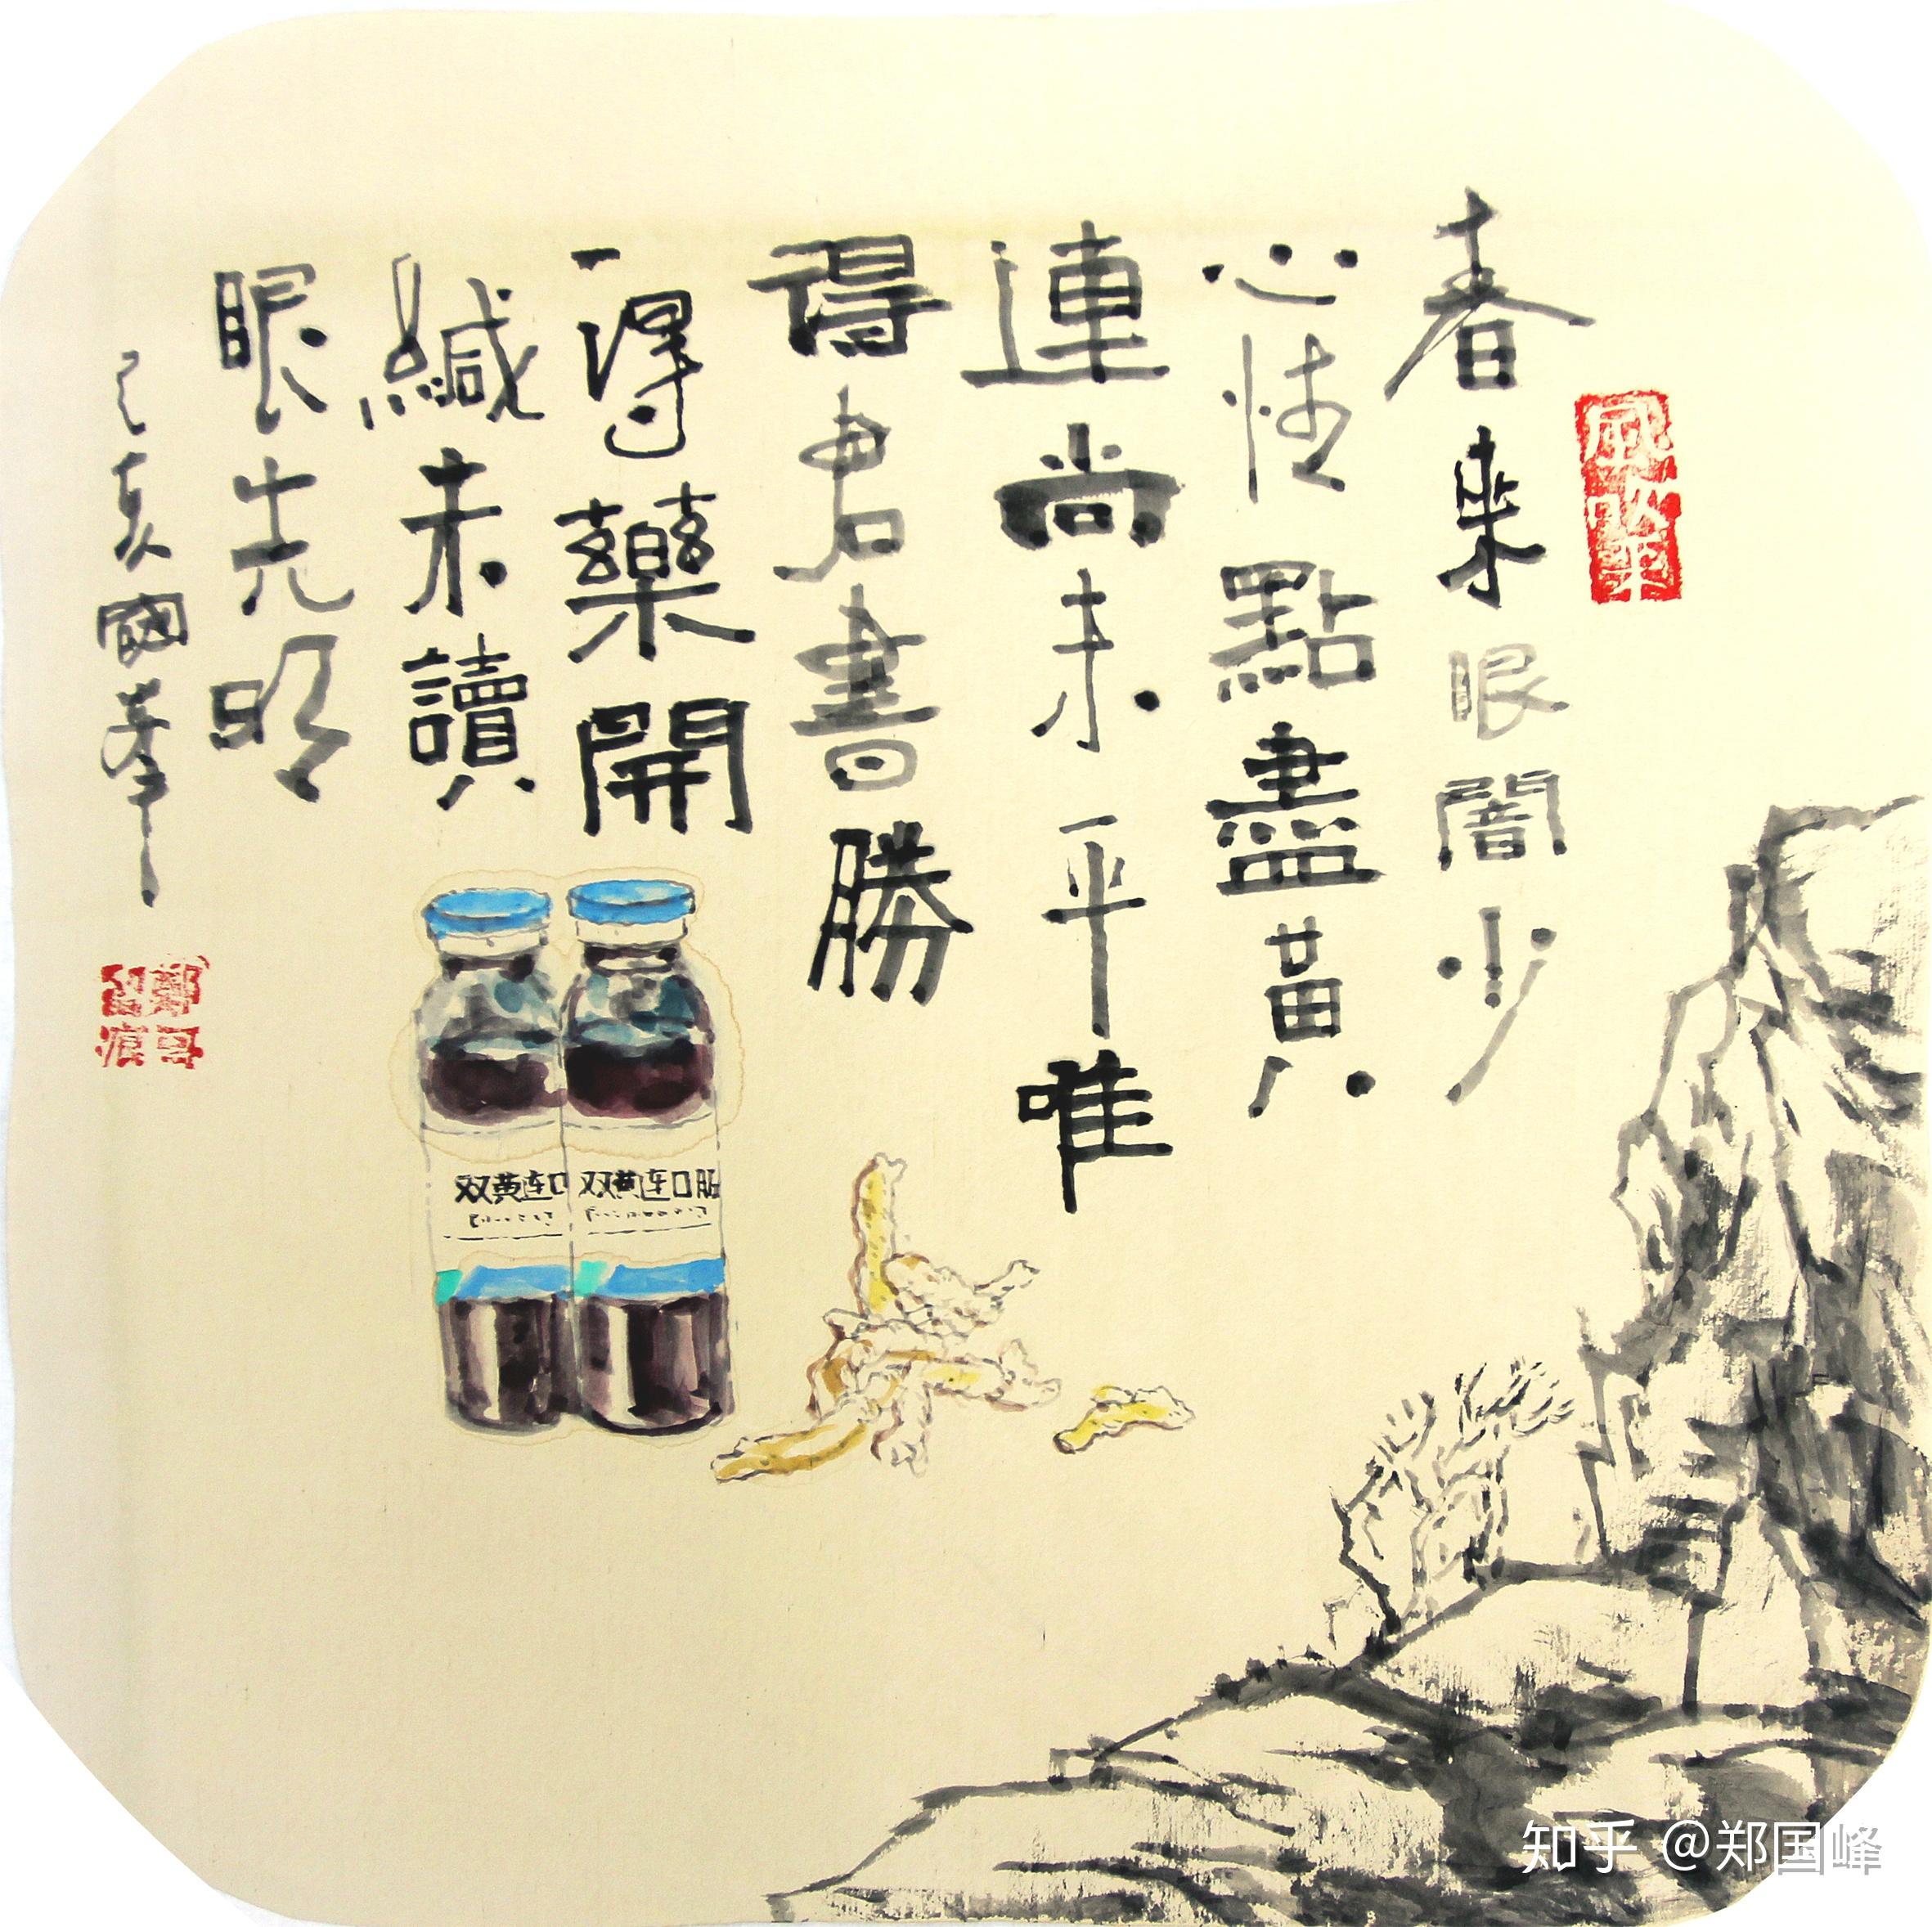 春来眼闇少
心情點盡黃
連尚未平唯
得君書勝
得藥開
緘未讀
眼先明
己亥國峯
双黄连口
双黄连口服
鄭哥留痕
知乎 @郑国峰